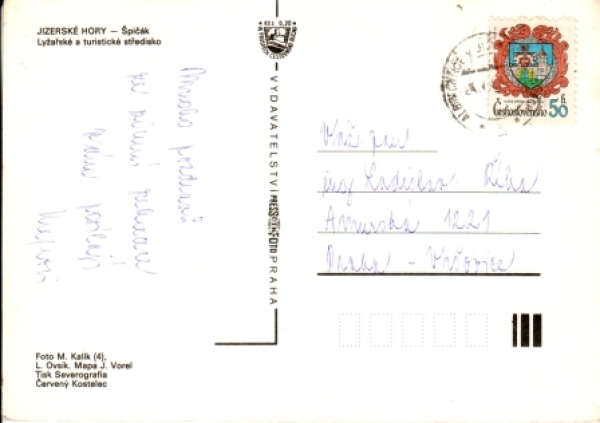 JIZERSKÉ HORY – Špičák
Lyžařské a turistické středisko
Mnoho pozdravů
ze zimní rekreace
Vám posílají
VYDAVATELSTVÍ PRESSFOTO PRAHA
Československo
50 h
Váž pan
ing Ladislav Říha
Amurská 1221
Praha – Vršovice
Foto M. Kalík (4),
L. Ovsík. Mapa J. Vorel
Tisk Severografia
Červený Kostelec